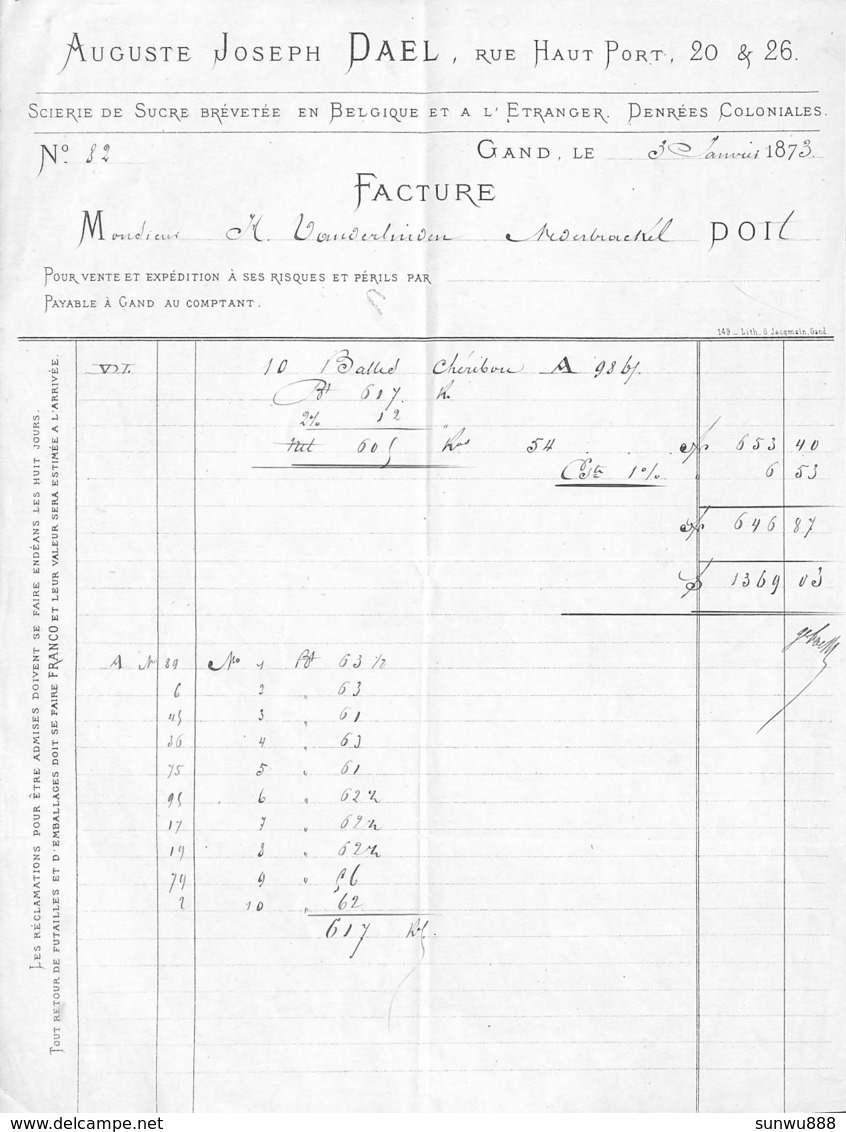 AUGUSTE JOSEPH DAEL, RUE HAUT PORT, 20 & 26.
SCIERIE DE SUCRE BRÉVETÉE EN BELGIQUE ET A L'ETRANGER. DENRÉES COLONIALES.
Nº 82 GAND, LE 3 Janvier 1873.
FACTURE
Monsieur H. Vanderlinden Nederbrackel DOIT
POUR VENTE ET EXPÉDITION À SES RISQUES ET PÉRILS PAR
PAYABLE À GAND AU COMPTANT.
149 - Lith. G Jacqmain, Gand.
LES RÉCLAMATIONS POUR ÊTRE ADMISES DOIVENT SE FAIRE ENDÉANS LES HUIT JOURS.
TOUT RETOUR DE FUTAILLES ET D'EMBALLAGES DOIT SE FAIRE FRANCO ET LEUR VALEUR SERA ESTIMÉE A L'ARRIVÉE.
10 Balles Chéribon A
Bt 617 K.
2% 12
Net 605 Kos 54 653 40
1% 6 53
646 87
1369 03
A No 89 No 1 Bt 63 1/2
6 2 " 63
45 3 " 61
36 4 " 63
75 5 " 61
95 6 " 62 1/2
17 7 " 62 1/2
19 8 " 62 1/2
79 9 " 56
2 10 " 62
617 K.
sunwu888